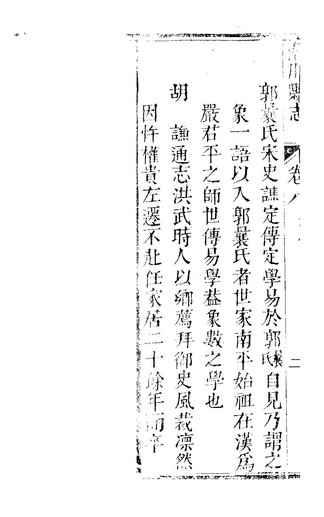 縣志
卷八
二
郭曩氏宋史譙定傳定學易於郭曩氏自見乃謂之
象一語以入郭曩氏者世家南平始祖在漢爲
嚴君平之師世傳易學葢象數之學也
胡 讜通志洪武時人以鄉薦拜御史風裁凛然
因忤權貴左遷不赴任家居二十餘年而卒